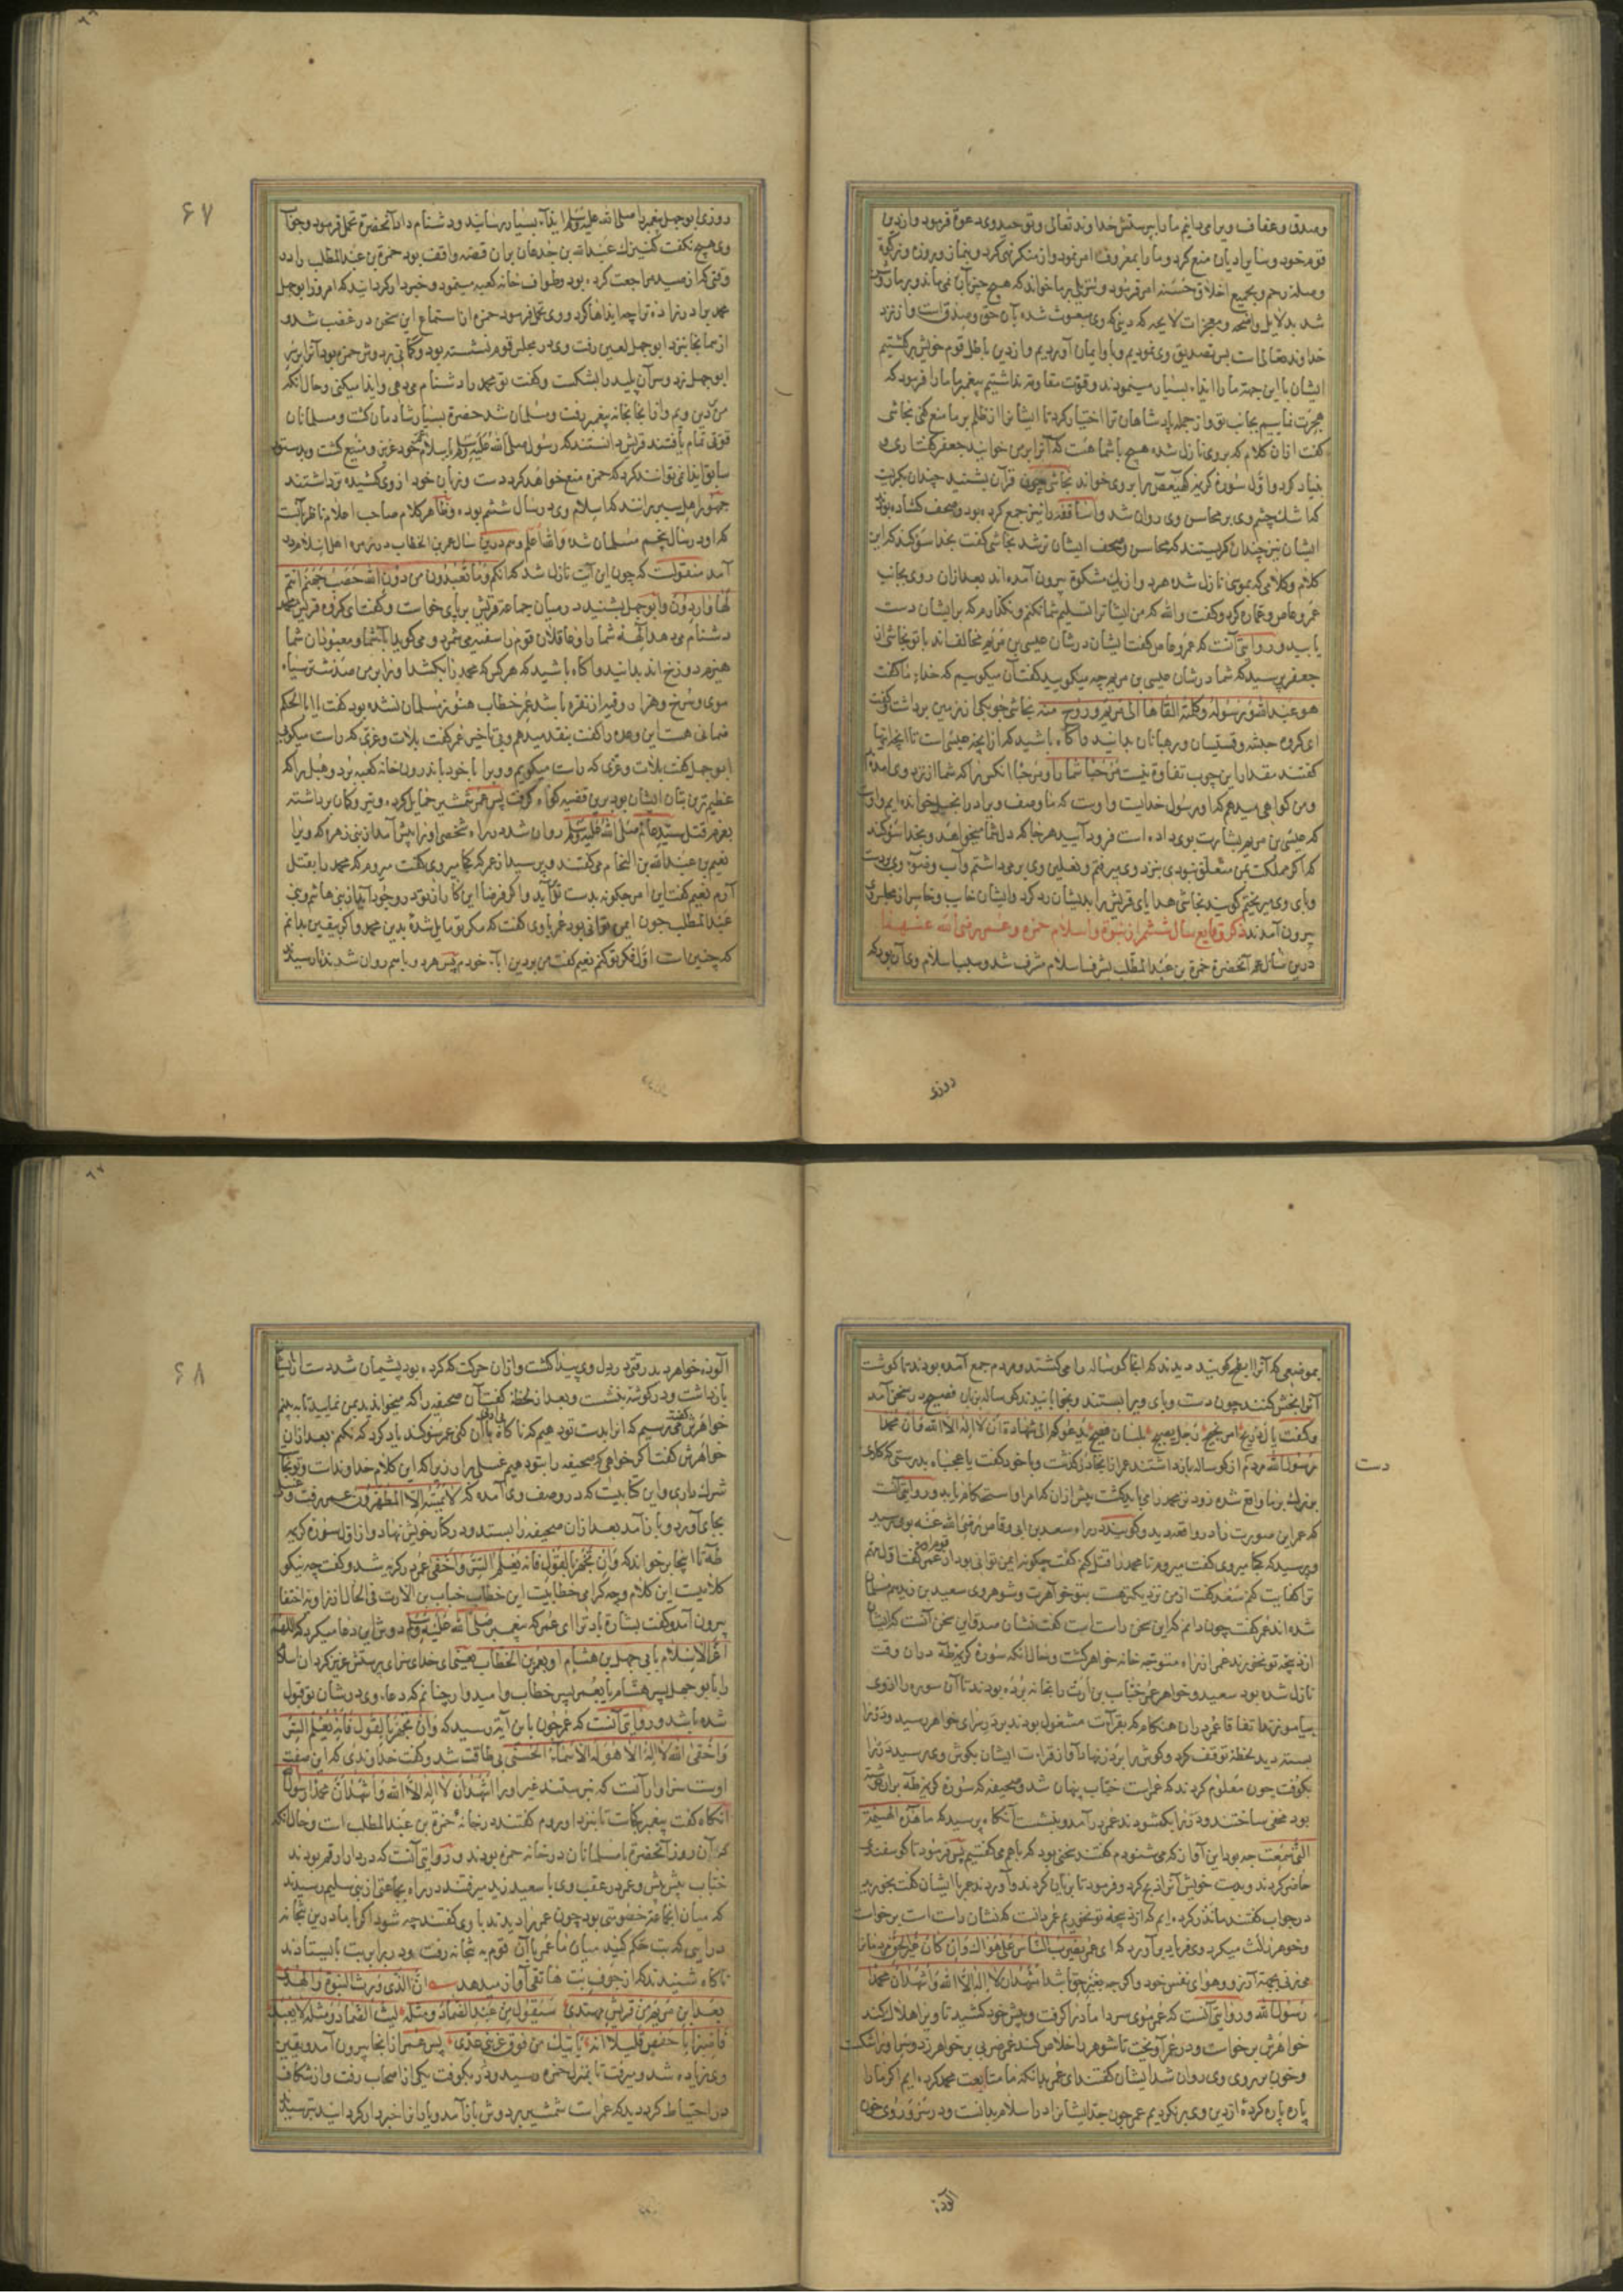 وصدق وعفاف ویرا میدانیم ما را بپرستش خداوند تعالی وتوحید وی دعوة فرمود واز دین
قوم خود وسایر ادیان منع کرد وما را بمعروف امر نمود واز منکر نهی کرد وبنماز وروزه وزکوة
وصلهٔ رحم وبجمیع اخلاق حسنه امر فرمود وتنزیلی بر ما خواند که هیچ چیز بآن نمی‌ماند وبر ما روشن
شد بدلایل واضحه ومعجزات لایحه که دینی که وی مبعوث شده بآن حق وصدق است واز نزد
خداوند تعالی است پس تصدیق وی نمودیم وباو ایمان آوردیم واز دین باطل قوم خویش برگشتیم
ایشان باین جهة ما را ایذاء بسیار مینمودند وقوت مقاومة نداشتیم پیغمبر ما ما را فرمود که
هجرت نماییم بجانب تو واز جمله پادشاهان ترا اختیار کرد تا ایشانرا از ظلم بر ما منع کنی نجاشی
گفت ازان کلام که بر وی نازل شده هیچ با شما هست که آنرا بر من خوانید جعفر گفت آری و
بنیاد کرد واول سورهٔ کریمه کهیعص را بر وی خواند نجاشی چون قرآن بشنید چندان بگریست
که اشک چشم وی بر محاسن وی روان شد واساقفه را نیز جمع کرده بود وصحف گشاده بودند
ایشان نیز چندان گریستند که محاسن وصحف ایشان تر شد نجاشی گفت بخدا سوگند که این
کلام وکلامی که بموسی نازل شده هر دو از یک مشکوة بیرون آمده‌اند بعد ازان روی بجانب
عمرو عاص وعماره کرد وگفت والله که من ایشانرا تسلیم شما نکنم ونگذارم که بر ایشان دست
یابید وروایتی آنست که عمرو عاص گفت ایشان در شان عیسی بن مریم مخالف‌اند با تو نجاشی از
جعفر پرسید که شما در شان عیسی بن مریم چه میگویید گفت آن میگوییم که خداء ما گفت
هو عبد الله ورسوله وکلمته القاها الی مریم وروح منه نجاشی چوبکی از زمین برداشت وگفت
ای گروه حبشه وقسیسان ورهبانان بدانید وآگاه باشید که از آنچه عیسی است تا آنچه اینها
گفتند مقدار این چوب تفاوة نیست مرحبا شما را ومرحبا آنکس را که شما از نزد وی آمده‌ایم
ومن گواهی میدهم که او رسول خدایست واوست که ما وصف ویرا در انجیل خوانده‌ایم واوست
که عیسی بن مریم بشارت بوی داده است فرود آیید هر جا که دل شما میخواهد وبخدا سوگند
که اگر مملکت بمن متعلق نبودی بنزد وی میرفتم ونعلین وی بر میداشتم وآب وضوء وی بر دست
وپای وی میریختم گویند نجاشی هدایای قریش را بدیشان رد کرد وایشان خایب وخاسر از مجلس وی
بیرون آمدند ذکر وقایع سال ششم از نبوة واسلام حمزه وعمر رضی الله عنهما
درین سال عم آنحضرة حمزة بن عبد المطلب بشرف اسلام مشرف شد وسبب اسلام وی آن بود که
روزی
۶۷
روزی ابو جهل پیغمبر را صلی الله علیه وسلم ایذاء بسیار رسانید ودشنام داد آنحضرة تحمل فرمود وجواب
وی هیچ نگفت کنیزک عبد الله بن جدعان بران قصه واقف بود حمزة بن عبد المطلب را در
وقتی که از صید مراجعت کرده بود وطواف خانه کعبه مینمود وخبردار گردانید که امروز ابو جهل
محمد برادرزاده ترا چه ایذاها کرد ووی تحمل فرمود حمزه از استماع این سخن در غضب شد و
از همانجا بنزد ابو جهل لعین رفت وی در مجلس قوم نشسته بود وکمانی بر دوش حمزه بود آنرا بر سر
ابو جهل زد وسر آن پلید را بشکست وگفت تو محمد را دشنام میدهی وایذا میکنی وحال آنکه
من بر دین ویم واز آنجا بخانه پیغمبر رفت ومسلمان شد حضرة بسیار شادمان گشت ومسلمانان
قوتی تمام یافتند قریش دانستند که رسول صلی الله علیه وسلم باسلام عم خود عزیز ومنیع گشت وبدستور
سابق ایذا نمی‌توانند کرد که حمزه منع خواهد کرد دست وزبان خود از وی کشیده تر داشتند
جمهور اهل سیر برانند که اسلام وی در سال ششم بوده وظاهر کلام صاحب اعلام ناظر آنست
که او در سال پنجم مسلمان شد والله اعلم وهم درین سال عمر بن الخطاب در زمره اهل اسلام در
آمد منقولست که چون این آیت نازل شد که انکم وما تعبدون من دون الله حصب جهنم انتم
لها واردون وابو جهل بشنید در میان جماعة قریش بر پای خواست وگفت ای گروه قریش محمد
دشنام میدهد آلهه شما را وعاقلان قوم را سفیه میشمرد ومی‌گوید آبا شما ومعبودان شما
هیزم دوزخ‌اند بدانید وآگاه باشید که هر کس که محمد را بکشد اورا بر من صد شتر سیاه
موی وسرخ وهزار وقیه از نقره باشد عمر خطاب هنوز مسلمان نشده بود گفت یا ابا الحکم
ضمانی هست این وعده را گفت بنقد میدهم وبی تاخیر عمر گفت بلات وعزی که راست میگویی
ابو جهل گفت بلات وعزی که راست میگویم وویرا با خود باندرون خانه کعبه برد وهبل را که
عظیم‌ترین بتان ایشان بود برین قضیه گواه گرفت پس عمر شمشیر حمایل کرده وتیر وکمان برداشته
بعزم قتل سید عالم صلی الله علیه وسلم روان شد در راه شخصی اورا پیش آمد از بنی زهره که ویرا
نعیم بن عبد الله بن النحام می‌گفتند وپرسید از عمر که کجا میروی گفت میروم که محمد را بقتل
آرم نعیم گفت این امر چگونه بدست تو آید واگر فرضا این کار از تو در وجود آید از بنی هاشم وبنی
عبد المطلب چون ایمن توانی بود عمر با وی گفت که مگر تو مایل شدهٔ بدین محمد واگر یقین بدانم
که چنین است اول فکر تو کنم نعیم گفت من بر دین آباء خودم پس هر دو با هم روان شدند تا رسیدند
بموضعی که آنرا ابطح گویند دیدند که آنجا گوساله را می‌کشتند ومردم جمع آمده بودند تا گوشت
آنرا بخش کنند چون دست وپای ویرا بستند وبخوابانیدند گوساله بزبان فصیح در سخن آمد
وگفت یا آل ذریح امر نجیح رجل یصیح بلسان فصیح یدعوکم الی شهادة ان لا اله الا الله وان محمدا
رسول الله مردم از گوساله باز داشتند عمر از آنجا در گذشت وبا خود گفت یا عجباه بدرستی که کاری
دست
بزرگ بر ما واقع شده زود تر محمد را می‌باید کشت پیش ازان که امر او استحکام یابد وروایتی آنست
که عمر این صورت را در واقعه دید وگویند در راه سعد بن ابی وقاص رضی الله عنه بوی رسید
وپرسید که کجا میروی گفت میروم تا محمد را قتل کنم گفت چگونه ایمن توانی بود از قوم او عمر گفت اول هم
ترا کفایت کنم سعد گفت از من نزدیکتر هست بتو خواهرت وشوهر وی سعید بن زید هم مسلمان
شده‌اند عمر گفت چون دانم که این سخن راست است گفت نشان صدق این سخن آنست که ایشان
از ذبیحه تو نخورند عمر ازان راه متوجه خانه خواهر گشت وحال آنکه سورهٔ کریمه طه دران وقت
نازل شده بود سعید وخواهر عمر خباب بن ارت را بخانه برده بودند تا آن سوره را از وی
بیاموزند اتفاقا عمر دران هنگام که بقرآت مشغول بودند بدر سرای خواهر رسید ودر را
بسته دید لحظه توقف کرد وگوش را بر در نهاد آواز قراءت ایشان بگوش وی رسید در را
بکوفت چون معلوم کردند که عمر است خباب پنهان شد وصحیفه که سورهٔ کریمه طه بران نوشته
بود مخفی ساختند ودر را بگشودند عمر در آمد وبنشست آنگاه پرسید که ما هذه الهیمنة
التی سمعت چه بود این آواز که می‌شنودم گفتند سخنی بود که با هم می‌گفتیم پس فرمود تا گوسفندی
حاضر کردند وبدست خویش آنرا ذبح کرد وفرمود تا بریان کردند وآوردند عمر با ایشان گفت بخورید
در جواب گفتند ما نذر کرده‌ایم که از ذبیحه تو نخوریم عمر دانست که نشان راست است برخواست
رسول الله وروایتی آنست که عمر موی سر داماد را گرفت وپیش خود کشید تا ویرا هلاک کند
خواهرش برخواست ودر عمر آویخت تا شوهر را خلاص کند عمر ضربی بر خواهر زد وسر اورا شکست
وخون بر روی وی روان شد ایشان گفتند ای عمر بدانکه ما متابعت محمد کرده‌ایم اگر ما را
پاره پاره کردهٔ از دین وی بر نگردیم عمر چون جد ایشانرا در اسلام بدانست ودر سر وروی خون
آلوده
۶۸
آلوده خواهر دید رقتی در دل وی پیدا گشت وازان حرکت که کرده بود پشیمان شد دست از ایشان
باز داشت ودر گوشه بنشست وبعد از لحظه گفت آن صحیفه را که میخواندید بمن نمایید تا ببینم
خواهرش گفت میترسیم که آنرا بدست تو دهیم که ناگاه بآن بی ادبی کنی عمر سوگند یاد کرد که نکنم بعد ازان
خواهرش گفت اگر خواهی که صحیفه را بتو دهیم غسلی برآر زیرا که این کلام خداوندست وتو نجاست
شرک داری واین کتابیست که در وصف وی آمده که لا یمسه الا المطهرون عمر رفت وغسل
بجای آورد وباز آمد بعد ازان صحیفه را بستد ودر کنار خویش نهاد واز اول سورهٔ کریمه
طه تا اینجا بر خواند که وان تجهر بالقول فانه یعلم السر واخفی عمر در گریه شد وگفت چه نیکو
کلامیست این کلام وچه گرامی خطابیست این خطاب خباب بن الارت فی الحال از زاویه اختفا
بیرون آمد وگفت بشارة باد ترا ای عمر که پیغمبر صلی الله علیه وسلم دوش این دعا میکرد که اللهم
اعز الاسلام بابی جهل بن هشام او بعمر بن الخطاب یعنی ای خدای سزای پرستش عزیز گردان اسلام
را بابو جهل پسر هشام یا بعمر پسر خطاب وامیدوار چنانم که دعاء وی در شان تو قبول
شده باشد وروایتی آنست که عمر چون باین آیة رسید که وان تجهر بالقول فانه یعلم السر
واخفی الله لا اله الا هو له الاسماء الحسنی بی طاقت شد وگفت خداوندی که این صفت
اوست سزاوار آنست که نپرستند غیر اورا اشهد ان لا اله الا الله واشهد ان محمدا رسول الله
آنگاه گفت پیغمبر کجاست تا بنزد او روم گفتند در خانهٔ حمزة بن عبد المطلب است وحال آنکه
که آن روز آنحضرة با مسلمانان در خانه حمزه بودند وروایتی آنست که در دار ارقم بودند
خباب پیش پیش وعمر در عقب وی با سعید زید میرفتند در راه بجماعتی از بنی سلیم رسیدند
که میان آنجماعة خصومتی بود چون عمر را دیدند با وی گفتند چه شود اگر با ما درین بتخانه
در آیی که بت حکم کند میان ما عمر با آن قوم به بتخانه رفت ودر برابر بت بایستادند
ناگاه شنیدند که از جوف بت هاتفی آواز میدهد ان الذی ورث النبوة والهدی
بعد ابن مریم من قریش مهتدی سیقول من عبد الضماد ومثله لیت الضماد ومثله لا یعبد
وی زیاده شد ومیرفت تا بمنزل حمزه رسید ودر بکوفت یکی از اصحاب رفت واز شکاف
در احتیاط کرد دید که عمر است شمشیر بر دوش باز آمد ویارانرا خبردار گردانید بترسیدند